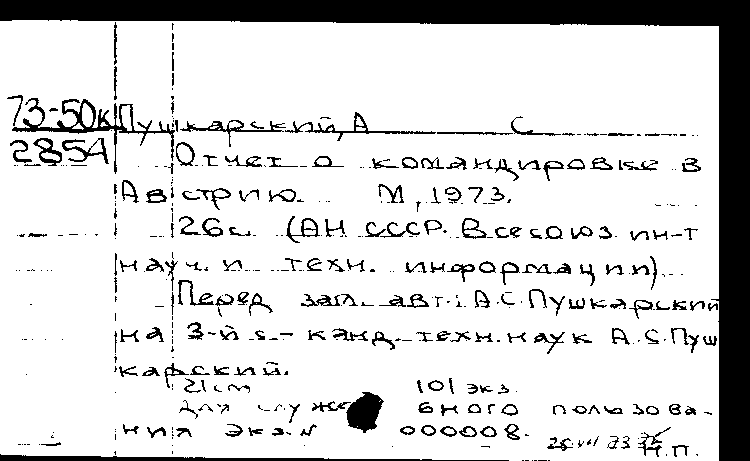 73-50к Пушкарский, А С
2854 Отчет о командировке в
Австрию. М, 1973.
26с. (АН СССР. Всесоюз ин-т
науч. и техн. информации).
Перед загл. авт.: А.С. Пушкарский
на 3-й с. - канд. техн. наук А.С. Пуш
карский.
21 cm 101 экз.
Для служебного пользова-
ния экз. N 000008.
Н.П.